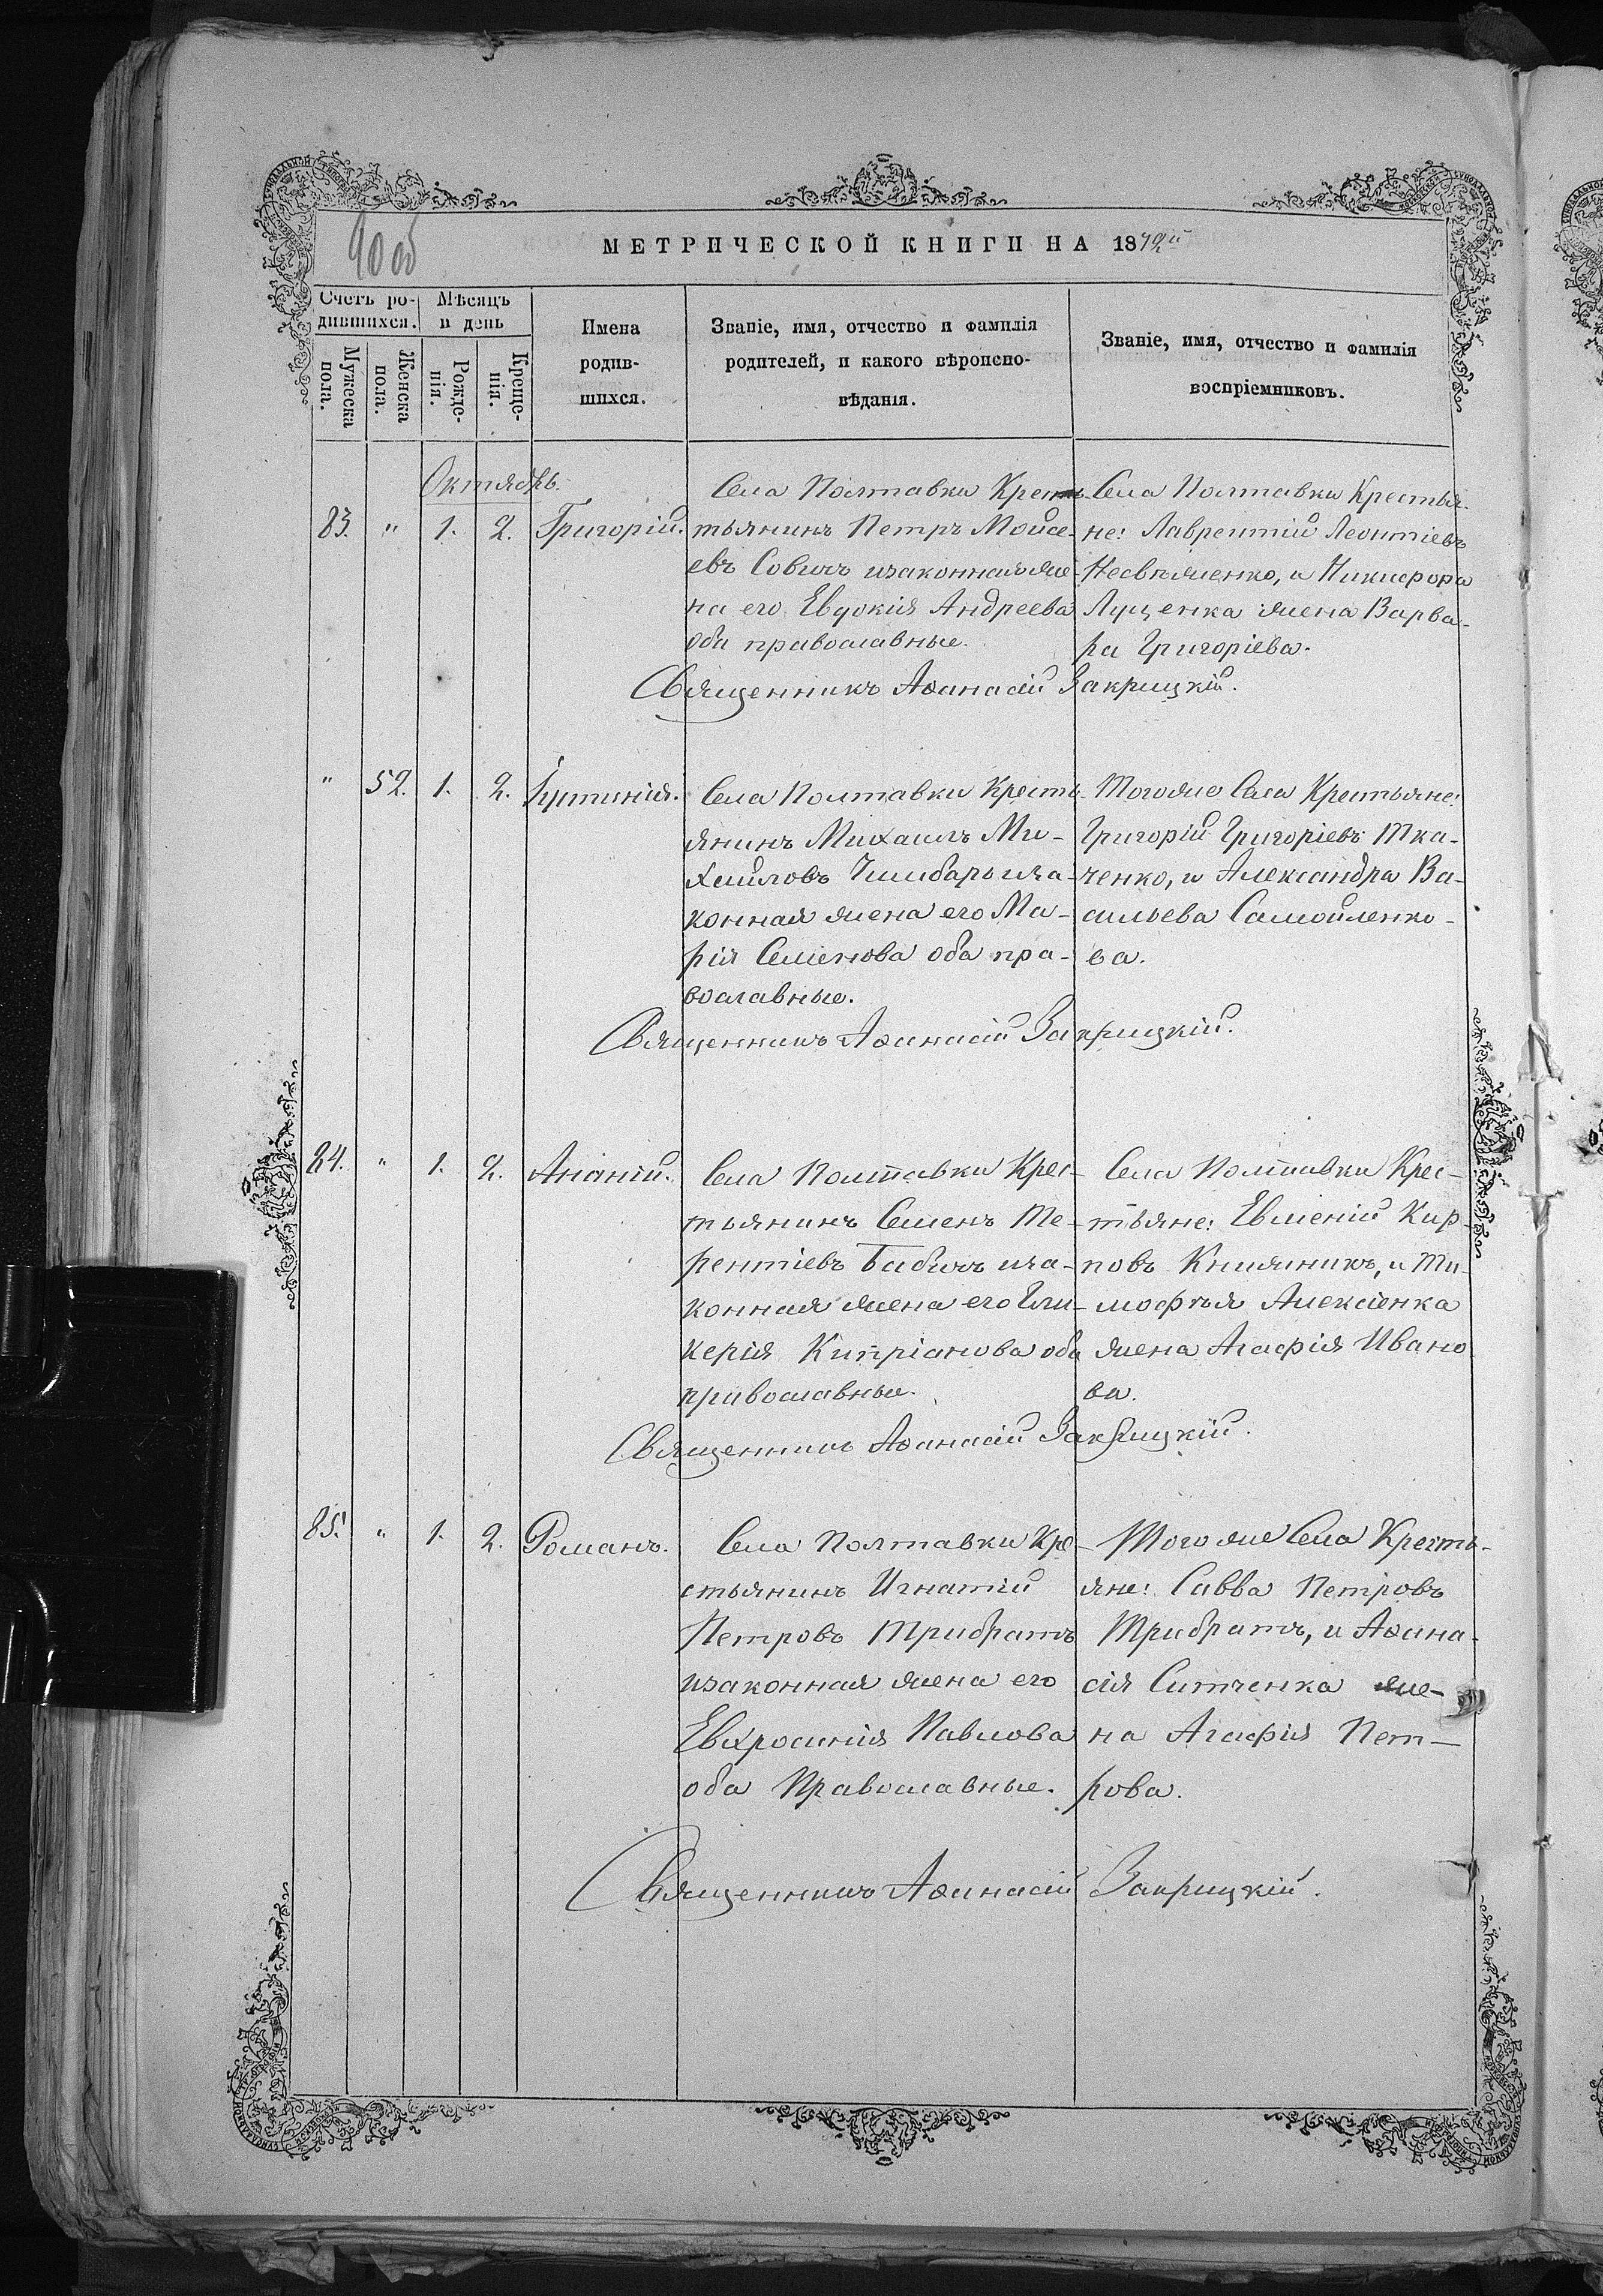 90 об
МЕТРИЧЕСКОЙ КНИГИ НА 1872й
Счетъ ро-
дившихся.
Мѣсяцъ
и день
Мужеска
пола.
Женска
пола.
Рожде-
нія.
Креще-
нія.
Имена
родив-
шихся.
Званіе, имя, отчество и фамилія
родителей, и какого вѣроиспо-
вѣданія.
Званіе, имя, отчество и фамилія
воспріемниковъ.
Октябрь.
83. " 1. 2. Григорій.
Села Полтавки Крес-
тьянинъ Петръ Мойсе-
евъ Совичъ изаконная же-
на его Евдокія Андреева
оба православные.
Села Полтавки Крестья-
не: Лаврентій Леонтіевъ
Несвяженко, и Никифора
Луценка жена Варва-
ра Григоріева.
Священникъ Аѳанасій Закрицкій.
" 52. 1. 2. Іустинія.
Села Полтавки Кресть-
янинъ Михаилъ Ми-
хайловъ Чимбарь иза-
конная жена его Ма-
рія Семенова оба пра-
вославные.
Тогоже Села Крестьяне:
Григорій Григоріевъ Тка-
ченко, и Александра Ва-
сильева Самойленко-
ва.
Священникъ Аѳанасій Закрицкій.
84. " 1. 2. Ананій.
Села Полтавки Крес-
тьянинъ Семенъ Те-
рентіевъ Бабичъ иза-
конная жена его Гли-
керія Кипріанова оба
православные.
Села Полтавки Крес-
тьяне: Евменій Кар-
повъ Книжникъ, и Ти-
мофѣя Алексіенка
жена Агафія Ивано
ва.
Священникъ Аѳанасій Закрицкій.
85. " 1. 2. Романъ.
Села Полтавки Кре-
стьянинъ Игнатій
Петровъ Трибратъ
изаконная жена его
Евхросинія Павлова
оба Православные.
Того же Села Кресть-
яне: Савва Петровъ
Трибратъ, и Аѳана-
сія Ситченка же-
на Агафія Пет-
рова.
Священникъ Аѳанасій Закрицкій.